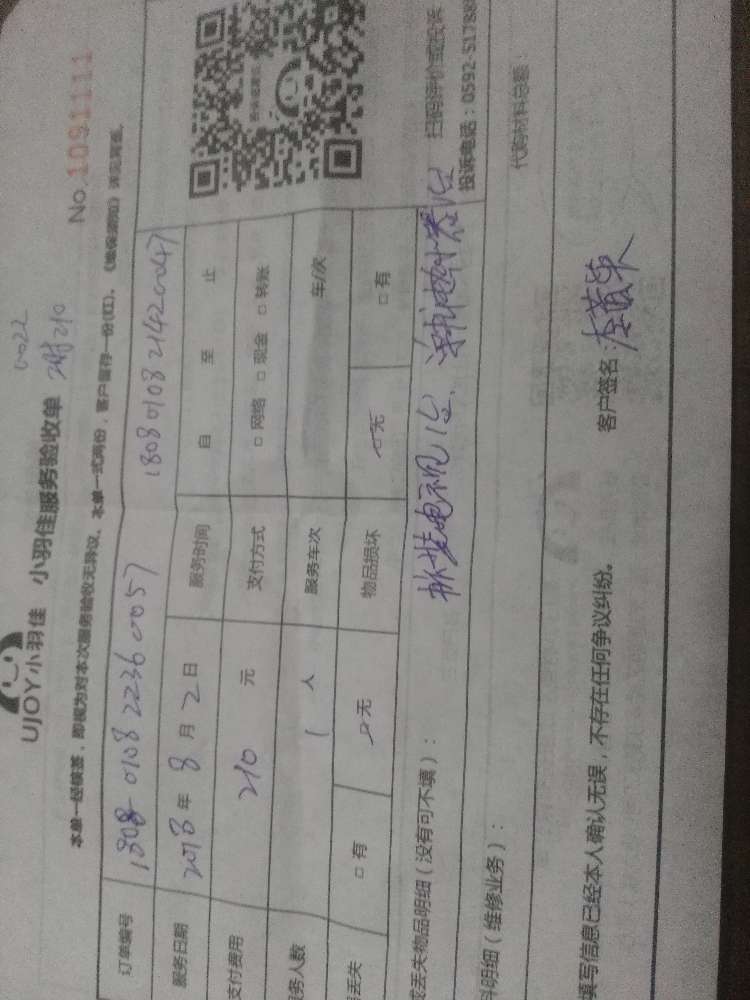 0022
UJOY小羽佳 小羽佳服务验收单 No.1091111
本单一经核签，即视为对本次服务验收无异议。本单一式两份，客户留存一份(红)。
订单编号 1808 0108 2236 0057 1808 0108 2142 0047
服务日期 2018 年 8 月 2 日 服务时间 自 至 止
支付费用 210 元 支付方式 □ 网络 □ 现金 □ 转账
务人数 1 人 服务车次 车/次
丢失 □ 有 □ 无 物品损坏 □ 无 □ 有
扫码评价或投诉
投诉电话：0592-51788
或丢失物品明细（没有可不填）： 拆装电视1台、
料明细（维修业务）： 代购材料总额：
填写信息已经本人确认无误，不存在任何争议纠纷。 客户签名：